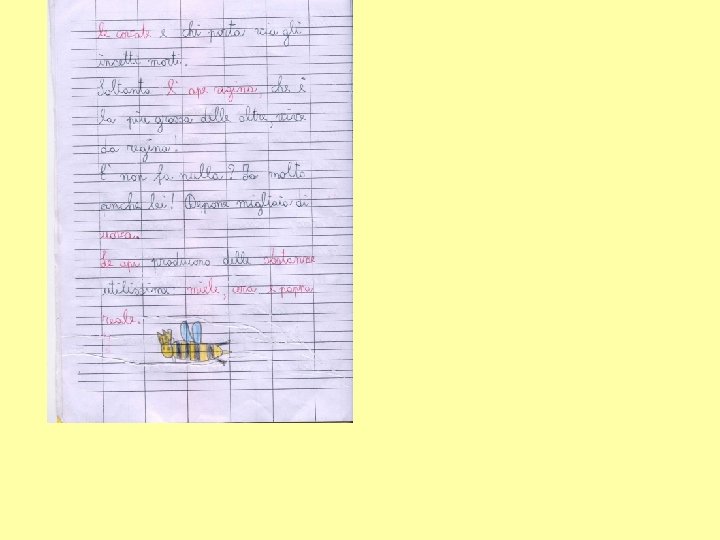 le covate e chi porta via gli
insetti morti.
Soltanto l'ape regina, che è
la più grossa delle altre, vive
da regina!
E non fa nulla? Fa molto
anche lei! Depone migliaia di
uova.
Le api producono delle sostanze
utilissime: miele, cera e pappa
reale.